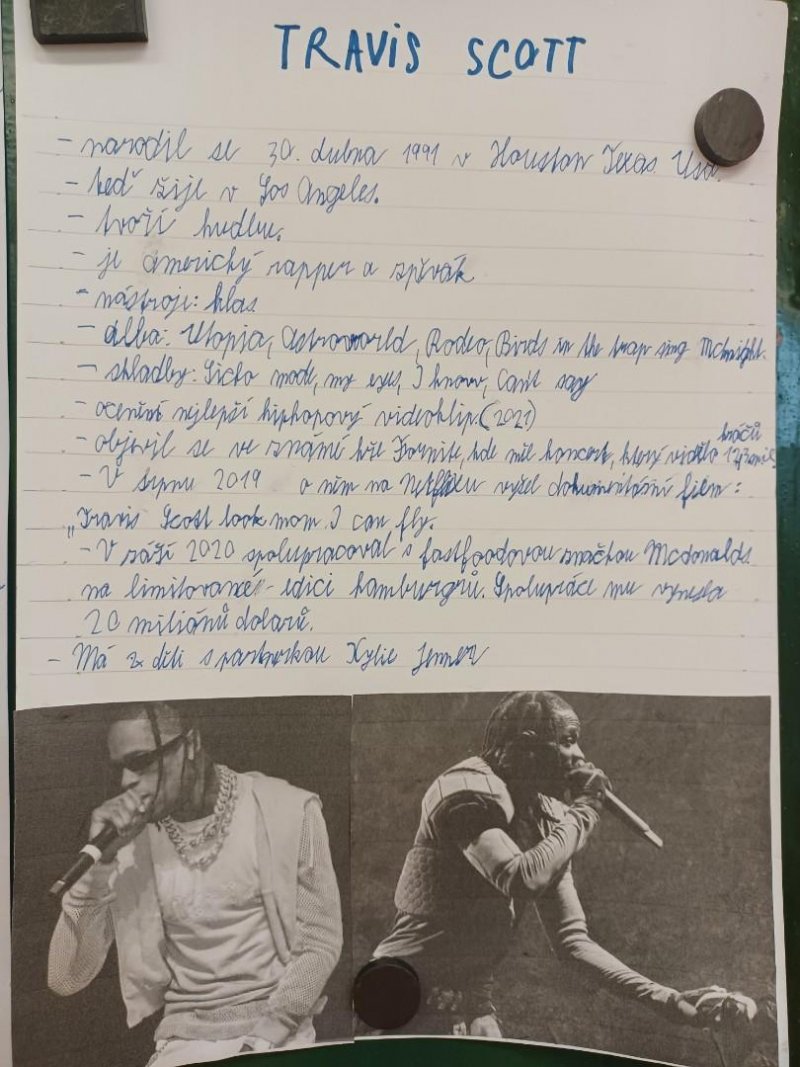 TRAVIS SCOTT
- narodil se 30. dubna 1991 v Houston Texas Usa.
- teď žije v Los Angeles.
- tvoří hudbu.
- je americký rapper a zpěvák
- nástroje: hlas
- alba: Utopia, Astroworld, Rodeo, Birds in the trap sing Mcknight.
- skladby: Sicko mode, my eyes, I know, Can't say
- ocenění nejlepší hiphopový videoklip. (2021)
hráčů
- objevil se ve známé hře Fornite, kde měl koncert, který vidělo 12,3 mil
- V srpnu 2019 o něm na Netflixu vyšel dokumentární film:
„Travis Scott look mom I can fly.
- V září 2020 spolupracoval s fastfoodovou značkou Mcdonalds
na limitované edici hamburgrů. Spolupráce mu vynesla
20 miliónů dolarů.
- Má 2 děti s partnerkou Kylie Jenner